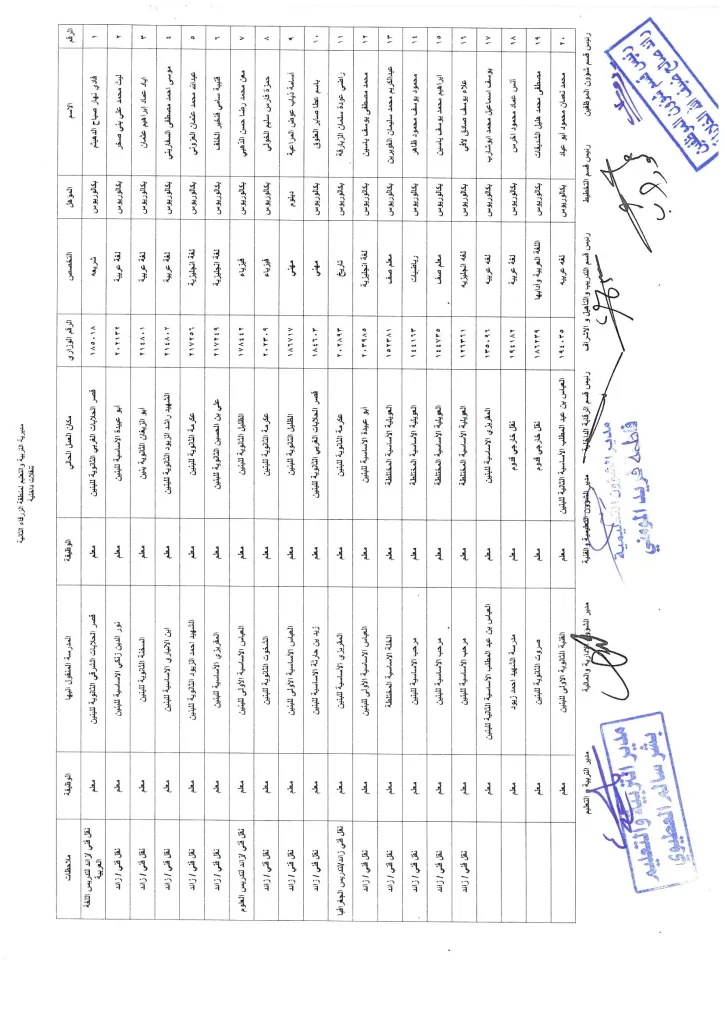 مديرية التربية والتعليم لمنطقة الزرقاء الثانية
تنقلات داخلية
الرقم الاسم المؤهل التخصص الرقم الوزاري مكان العمل الحالي الوظيفة المدرسة المنقول اليها الوظيفة ملاحظات
١ فادي نهار صباح الدهيثم بكالوريوس شريعه ١٨٥٠١٨ قصر الحلابات الغربي الثانوية للبنين معلم قصر الحلابات الشرقي الثانوية للبنين معلم نقل فني /زائد لتدريس اللغة العربية
٢ ليث محمد علي بني صخر بكالوريوس لغة عربية ٢٠٢١٣٢ ابو عبيدة الاساسية للبنين معلم نور الدين زنكي الاساسية للبنين معلم نقل فني / زائد
٣ اياد عماد ابراهيم عثمان بكالوريوس لغة عربية ٢١٤٨٠١ ثانوية بنين معلم الثانوية للبنين معلم نقل فني / زائد
٤ موسى احمد مصطفى السفاريني بكالوريوس لغة عربية ٢١٤٨٠٢ الشهيد راشد الزيود الثانوية للبنين معلم ابن الانباري الاساسية للبنين معلم نقل فني / زائد
٥ عبدالله محمد عثمان العزوني بكالوريوس لغة انجليزية ٢١٧٢٥٦ عكرمة الثانوية للبنين معلم الشهيد احمد الزيود الثانوية للبنين معلم نقل فني / زائد
٦ قتيبة سامي الخلف بكالوريوس لغة انجليزية ٢١٧٢٤٩ علي بن الحسين الثانوية للبنين معلم المقريزي الاساسية للبنين معلم نقل فني / زائد
٧ معن محمد رضا حسن الذهبي بكالوريوس فيزياء ١٧٨٤٤٢ الظليل الثانوية للبنين معلم المقريزي الاساسية للبنين معلم نقل فني /زائد لتدريس العلوم
٨ حمزة فارس سليم الخولي بكالوريوس فيزياء ٢٠٢٣٠٩ عكرمة الثانوية للبنين معلم الثانوية للبنين معلم نقل فني / زائد
٩ اسامة ذياب عوض المراعية دبلوم مهني ١٨٦٧١٧ الظليل الثانوية للبنين معلم العباس الاساسية الأولى للبنين معلم نقل فني / زائد
١٠ باسم عطا صابر بكالوريوس مهني ١٨٤٦٠٣ قصر الحلابات الغربي الثانوية للبنين معلم زيد بن حارثة الاساسية للبنين معلم نقل فني / زائد
١١ راضي عودة سلمان الزيارقة بكالوريوس تاريخ ٢٠٢٨٩٣ عكرمة الثانوية للبنين معلم المقريزي الاساسية للبنين معلم نقل فني زائد/لتدريس الجغرافيا
١٢ محمد مصطفى يوسف ياسين بكالوريوس لغة انجليزية ٢٠٣٩٨٥ ابو عبيدة الاساسية للبنين معلم العباس الاساسية الأولى للبنين معلم نقل فني / زائد
١٣ عبدالكريم محمد سليمان القويرين بكالوريوس معلم صف ١٥٢٣٨١ العويلية الاساسية المختلطة معلم الاساسية المختلطة معلم نقل فني / زائد
١٤ محمود يوسف محمود ظاهر بكالوريوس رياضيات ١٤٤١٦٣ العويلية الاساسية المختلطة معلم مرحب الاساسية للبنين معلم نقل فني / زائد
١٥ ابراهيم محمد يوسف ياسين بكالوريوس معلم صف ١٤٤٧٣٥ العويلية الاساسية المختلطة معلم مرحب الاساسية للبنين معلم نقل فني / زائد
١٦ علاء يوسف صادق لافي بكالوريوس لغه انجليزيه ١٢٦٣٦١ العويلية الاساسية المختلطة معلم مرحب الاساسية للبنين معلم نقل فني / زائد
١٧ يوسف اسماعيل محمد ابوشارب بكالوريوس لغه عربيه ١٣٥٠٩٦ المقريزي الاساسية للبنين معلم العباس بن عبد المطلب الاساسية الثانية للبنين معلم
١٨ انس عماد محمود اخرس بكالوريوس لغة عربية ١٩٤١٨٢ نقل خارجي قدوم معلم مدرسة الشهيد احمد زيود معلم
١٩ مصطفى محمد هليل الشديفات بكالوريوس اللغة العربية وادابها ١٨٦٢٣٩ نقل خارجي قدوم معلم صروت الثانوية للبنين معلم
٢٠ محمد نعمان محمود ابو عياد بكالوريوس لغه عربيه ١٩٤٠٣٥ العباس بن عبد المطلب الاساسية الثانية للبنين معلم القنية الثانوية الأولى للبنين معلم
رئيس قسم شؤون الموظفين رئيس قسم التخطيط رئيس قسم التدريب والتأهيل و الاشراف رئيس قسم الرقابة الداخلية مدير الشؤون التعليمية والفنية مدير الشؤون الادارية والمالية مدير التربية و التعليم
مدير الشؤون التعليمية
فاطمه فريد المومني
مدير التربية والتعليم
بشر سالم العطيوي